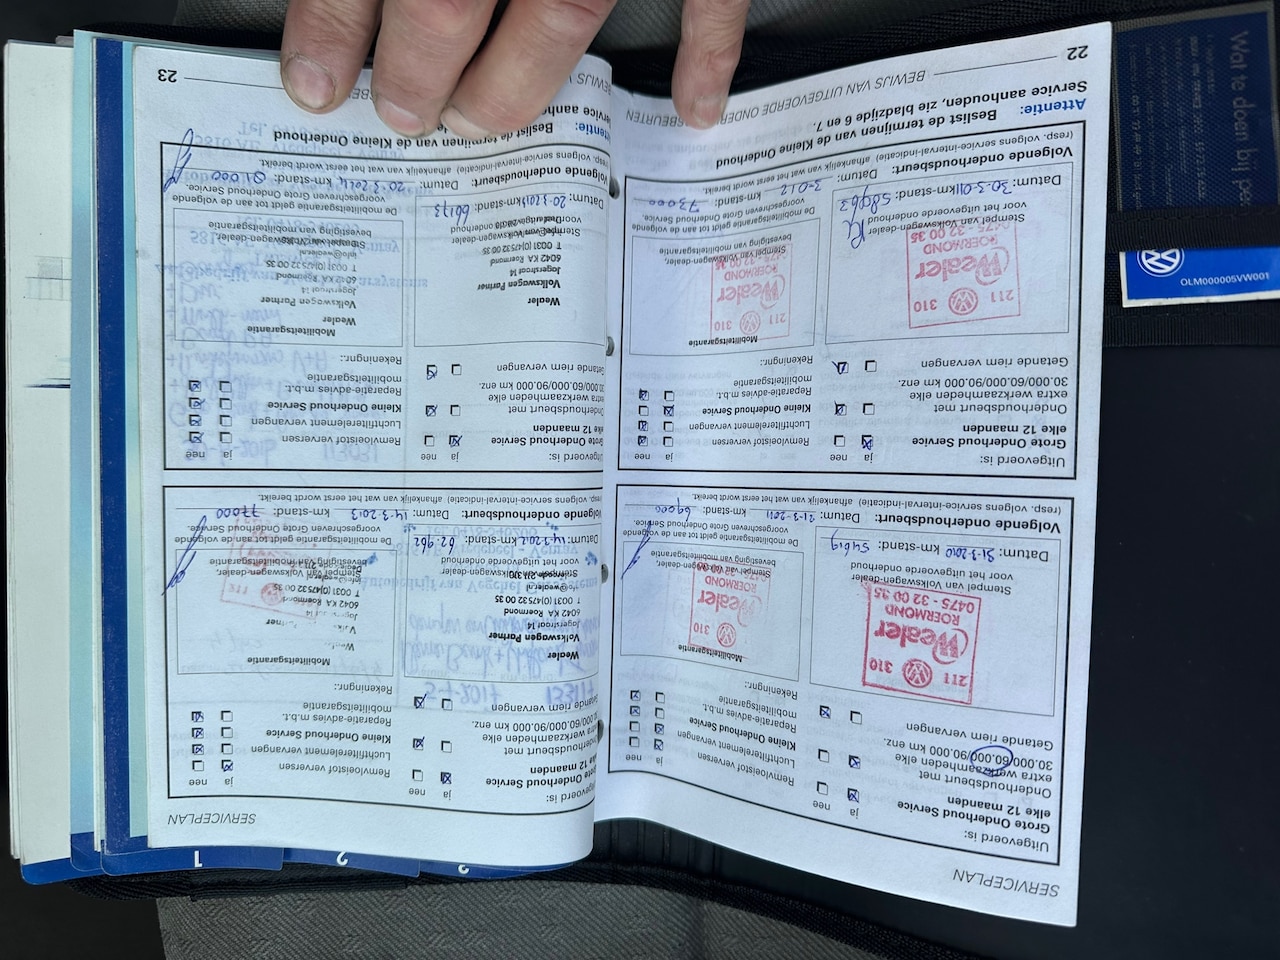 SERVICEPLAN
Uitgevoerd is:
Grote Onderhoud Service
elke 12 maanden
Onderhoudsbeurt met
extra werkzaamheden elke
30.000/60.000/90.000 km enz.
Getande riem vervangen
ja nee
Remvloeistof verversen
Luchtfilterelement vervangen
Kleine Onderhoud Service
Reparatie-advies m.b.t.
mobiliteitsgarantie
Rekeningnr.:
ja nee
Stempel van Volkswagen-dealer
voor het uitgevoerde onderhoud
211 310
Wealer
ROERMOND
0475 - 32 00 35
Datum: 31-3-2010 km-stand: 54619
Mobiliteitsgarantie
310
Wealer
ROERMOND
Stempel van Volkswagen-dealer,
bevestiging van mobiliteitsgarantie
De mobiliteitsgarantie geldt tot aan de volgende
voorgeschreven Grote Onderhoud Service.
Volgende onderhoudsbeurt: Datum: 21-3-2011 km-stand: 69000
(resp. volgens service-interval-indicatie) afhankelijk van wat het eerst wordt bereikt.
Uitgevoerd is:
Grote Onderhoud Service
elke 12 maanden
Onderhoudsbeurt met
extra werkzaamheden elke
30.000/60.000/90.000 km enz.
Getande riem vervangen
ja nee
Remvloeistof verversen
Luchtfilterelement vervangen
Kleine Onderhoud Service
Reparatie-advies m.b.t.
mobiliteitsgarantie
Rekeningnr.:
ja nee
211 310
Wealer
ROERMOND
0475 - 32 00 35
Stempel van Volkswagen-dealer
voor het uitgevoerde onderhoud
Datum: 30-3-011 km-stand: 58963
Mobiliteitsgarantie
211 310
Wealer
ROERMOND
Stempel van Volkswagen-dealer,
bevestiging van mobiliteitsgarantie
De mobiliteitsgarantie geldt tot aan de volgende
voorgeschreven Grote Onderhoud Service.
Volgende onderhoudsbeurt: Datum: 3-012 73000
(resp. volgens service-interval-indicatie) afhankelijk van wat het eerst wordt bereikt.
Attentie: Beslist de termijnen van de Kleine Onderhoud
Service aanhouden, zie bladzijde 6 en 7.
22 BEWIJS VAN UITGEVOERDE ONDERHOUDSBEURTEN
SERVICEPLAN
Uitgevoerd is:
Grote Onderhoud Service
12 maanden
Onderhoudsbeurt met
extra werkzaamheden elke
30.000/60.000/90.000 km enz.
Getande riem vervangen
ja nee
Remvloeistof verversen
Luchtfilterelement vervangen
Kleine Onderhoud Service
Reparatie-advies m.b.t.
mobiliteitsgarantie
Rekeningnr.:
ja nee
Wealer
Volkswagen Partner
Jagerstraat 14
6042 KA Roermond
T 0031 (0)475 32 00 35
info@wealer.nl
voor het uitgevoerde onderhoud
Datum: 14-3-2012 km-stand: 62.962
Mobiliteitsgarantie
6042 KA Roermond
Stempel van Volkswagen-dealer,
bevestiging van mobiliteitsgarantie
De mobiliteitsgarantie geldt tot aan de volgende
voorgeschreven Grote Onderhoud Service.
Volgende onderhoudsbeurt: Datum: 14-3-2013 km-stand: 77000
(resp. volgens service-interval-indicatie) afhankelijk van wat het eerst wordt bereikt.
Uitgevoerd is:
Grote Onderhoud Service
elke 12 maanden
Onderhoudsbeurt met
extra werkzaamheden elke
30.000/60.000/90.000 km enz.
Getande riem vervangen
ja nee
Remvloeistof verversen
Luchtfilterelement vervangen
Kleine Onderhoud Service
Reparatie-advies m.b.t.
mobiliteitsgarantie
Rekeningnr.:
ja nee
Wealer
Volkswagen Partner
Jagerstraat 14
6042 KA Roermond
T 0031 (0)475 32 00 35
voor het uitgevoerde onderhoud
Datum: 20-3-2013 km-stand: 66173
Mobiliteitsgarantie
Wealer
Volkswagen Partner
Jagerstraat 14
6042 KA Roermond
T 0031 (0)475 32 00 35
info@wealer.nl
bevestiging van mobiliteitsgarantie
De mobiliteitsgarantie geldt tot aan de volgende
voorgeschreven Grote Onderhoud Service.
Volgende onderhoudsbeurt: Datum: 20-3-2014 km-stand: 81000
(resp. volgens service-interval-indicatie) afhankelijk van wat het eerst wordt bereikt.
Attentie: Beslist de termijnen van de Kleine Onderhoud
Service aanhouden
23
1
2
3
Wat te doen bij
OLM000005VW001